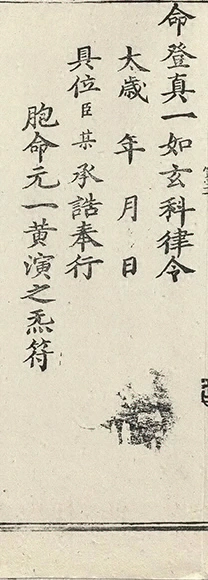 命登真一如玄科律令
太歲　年　月　日
具位臣某承誥奉行
胞命元一黄演之炁符